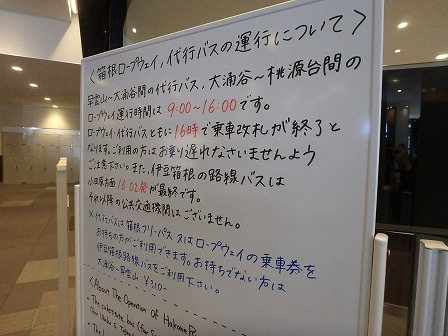 ＜箱根ロープウェイ，代行バスの運行について＞
早雲山～大涌谷間の代行バス，大涌谷～桃源台間の
ロープウェイ運行時間は 9:00～16:00です。
ロープウェイ・代行バスともに16時で乗車改札が終了と
なります。ご利用の方はお乗り遅れなさいませんよう
ご注意下さい。また、伊豆箱根の路線バスは
小田原方面 16:02発が最終です。
それ以降の公共交通機関はございません。
※代行バスは箱根フリーパス 又はロープウェイの乗車券を
お持ちの方がご利用できます。お持ちでない方は
伊豆箱根路線バスをご利用下さい。
大涌谷～早雲山 ¥310-
＜About The Operation Of Hakone
The substitute bus (for